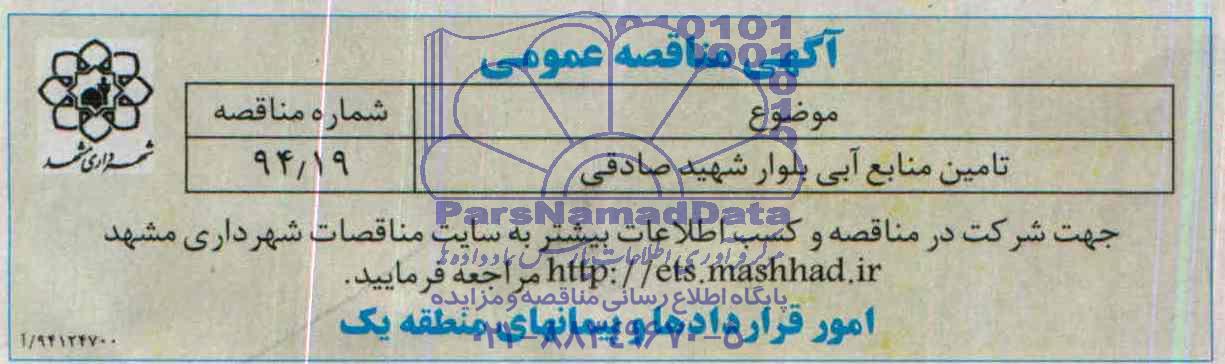 آگهی مناقصه عمومی
موضوع شماره مناقصه
تامین منابع آبی بلوار شهید صادقی ۹۴/۱۹
جهت شرکت در مناقصه و کسب اطلاعات بیشتر به سایت مناقصات شهرداری مشهد
http://ets.mashhad.ir مراجعه فرمایید.
امور قراردادها و پیمانهای منطقه یک
شهرداری مشهد
۹۴۱۲۴۷۰۰/آ
ParsNamadData
پایگاه اطلاع رسانی مناقصه و مزایده
۰۲۱-۸۸۳۴۹۶۷۰-۵